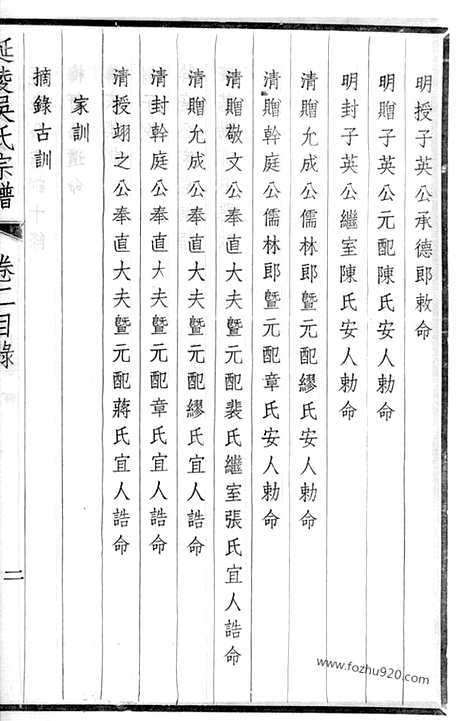 明授子英公承德郎敕命
明贈子英公元配陳氏安人勅命
明封子英公繼室陳氏安人勅命
清贈允成公儒林郎暨元配繆氏安人勅命
清贈幹庭公儒林郎暨元配章氏安人勅命
清贈敬文公奉直大夫暨元配裴氏繼室張氏宜人誥命
清贈允成公奉直大夫暨元配繆氏宜人誥命
清封幹庭公奉直大夫暨元配章氏宜人誥命
清授翊之公奉直大夫暨元配蔣氏宜人誥命
家訓
摘錄古訓
延陵吳氏宗譜
卷二目錄
二
www.fozhu920.com